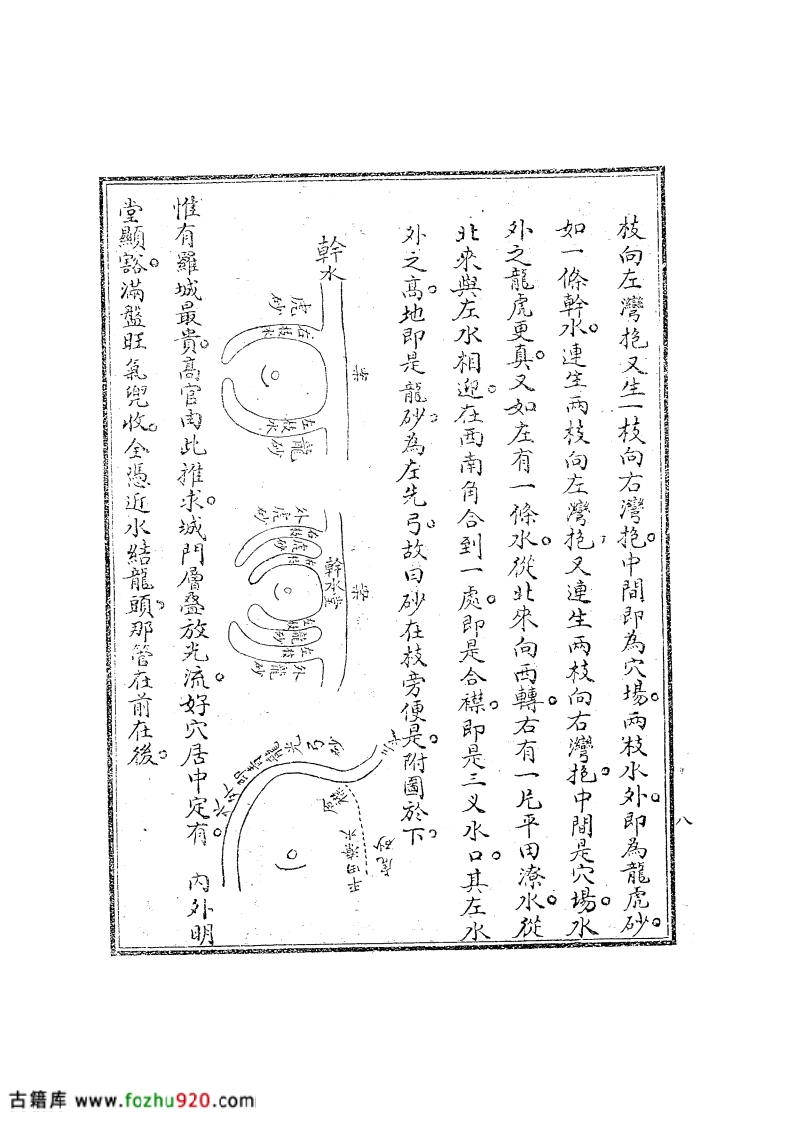 枝向左灣抱又生一枝向右灣抱。中間即為穴場。兩枝水外。即為龍虎砂。
如一條幹水。連生兩枝向左灣抱又連生兩枝向右灣抱。中間是穴場。水
外之龍虎更真。又如左有一條水。從北來向西轉。右有一片平田潦水。從
北來與左水相迎。在西南角合到一處。即是合襟。即是三义水口。其左水
外之高。地即是龍砂。為左先弓。故曰砂在枝旁便是。附圖於下。
幹水
虎砂
右枝水
左枝水
龍砂
外虎砂
右枝
虎砂
幹水
堂
龍砂
左枝
外龍砂
砂
弓
先
合襟
平田潦水
虎砂
惟有羅城最貴。高官由此推求。城門層叠放光流。好穴居中定有 內外明
堂顯豁。滿盤旺氣兜收。全憑近水結龍頭。那管在前在後。
八
古籍库 www.fozhu920.com